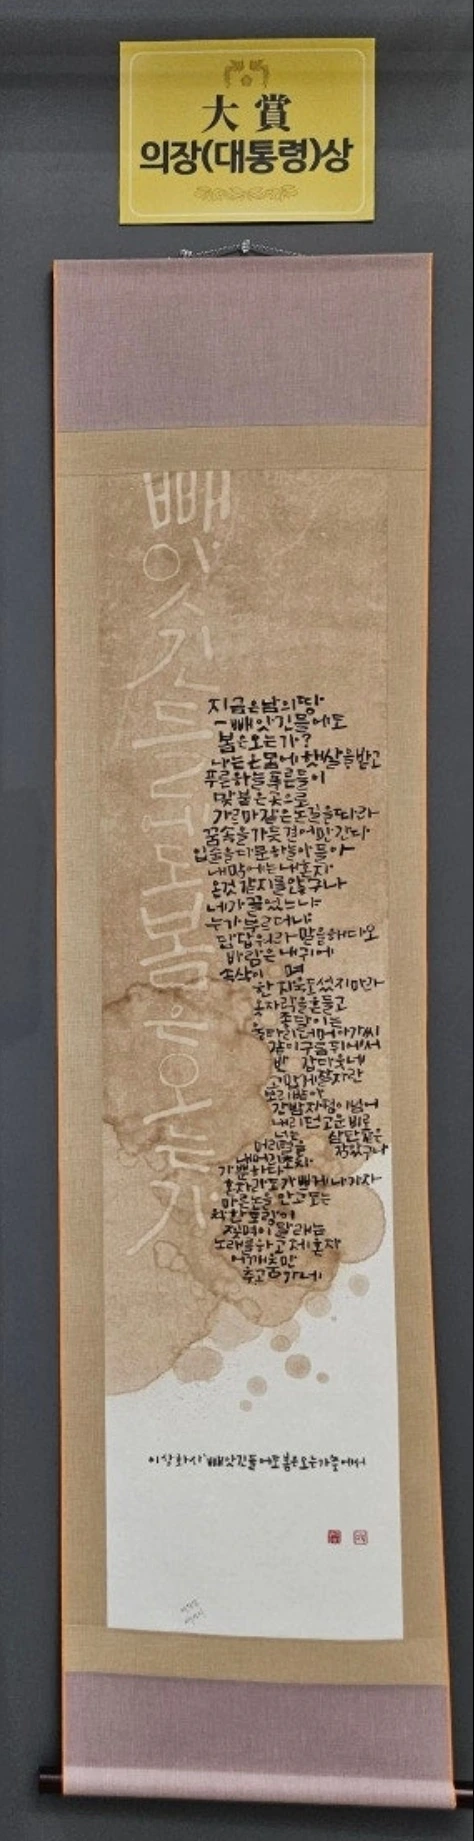 大賞
의장(대통령)상
빼앗긴들에도봄은오는가
지금은남의땅
ㅡ빼앗긴들에도
봄은오는가?
나는온몸에햇살을받고
푸른하늘푸른들이
맞붙은곳으로
가르마같은논길을따라
꿈속을가듯걸어만간다
입술을다문하늘아들아
내맘에는내혼자
온것같지를않구나
네가끌었느냐
누가부르더냐
답답워라말을해다오
바람은내귀에
속삭이며
한자욱도섰지마라
옷자락을흔들고
종달이는
울타리너머아가씨
같이구름뒤에서
반갑다웃네
고맙게잘자란
보리밭아
간밤자정이넘어
내리던고운비로
너는 삼단같은
머리털을 감았구나
내머리조차
가뿐하다
혼자라도가쁘게나가자
마른논을안고도는
착한도랑이
젖먹이달래는
노래를하고제혼자
어깨춤만
추고가네
이상화시'빼앗긴들에도봄은오는가'중에서